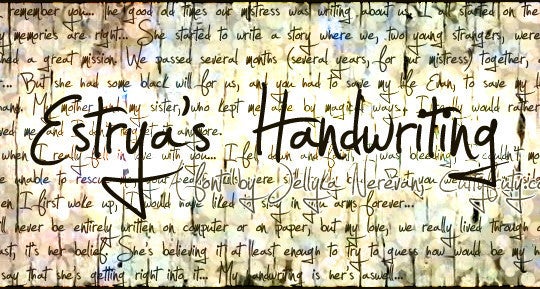 remember you... the good old times our mistress was writing about us. It all started on the
y memories are right... She started to write a story where we, two young strangers, were
had a great mission. We passed several months (several years, for our mistress) together,
... But she had some black will for us, and you had to save my life Evan, to save my
My mother my sister, who kept me alive by magical ways. would rather
me and don't anymore.
Estrya's Handwriting
when I really fell in love with you... I fell down and was bleeding couldn't
unable to rescue Font by Jellyka Nerevan But you
en I first woke up, I would have liked to stay in your arms forever...
ll never be entirely written on computer or on paper, but my love, we really lived through
ast, it's her belief. She's believing it at least enough to try to guess how would be my
say that she's getting right into it... My handwriting is her's aswell...